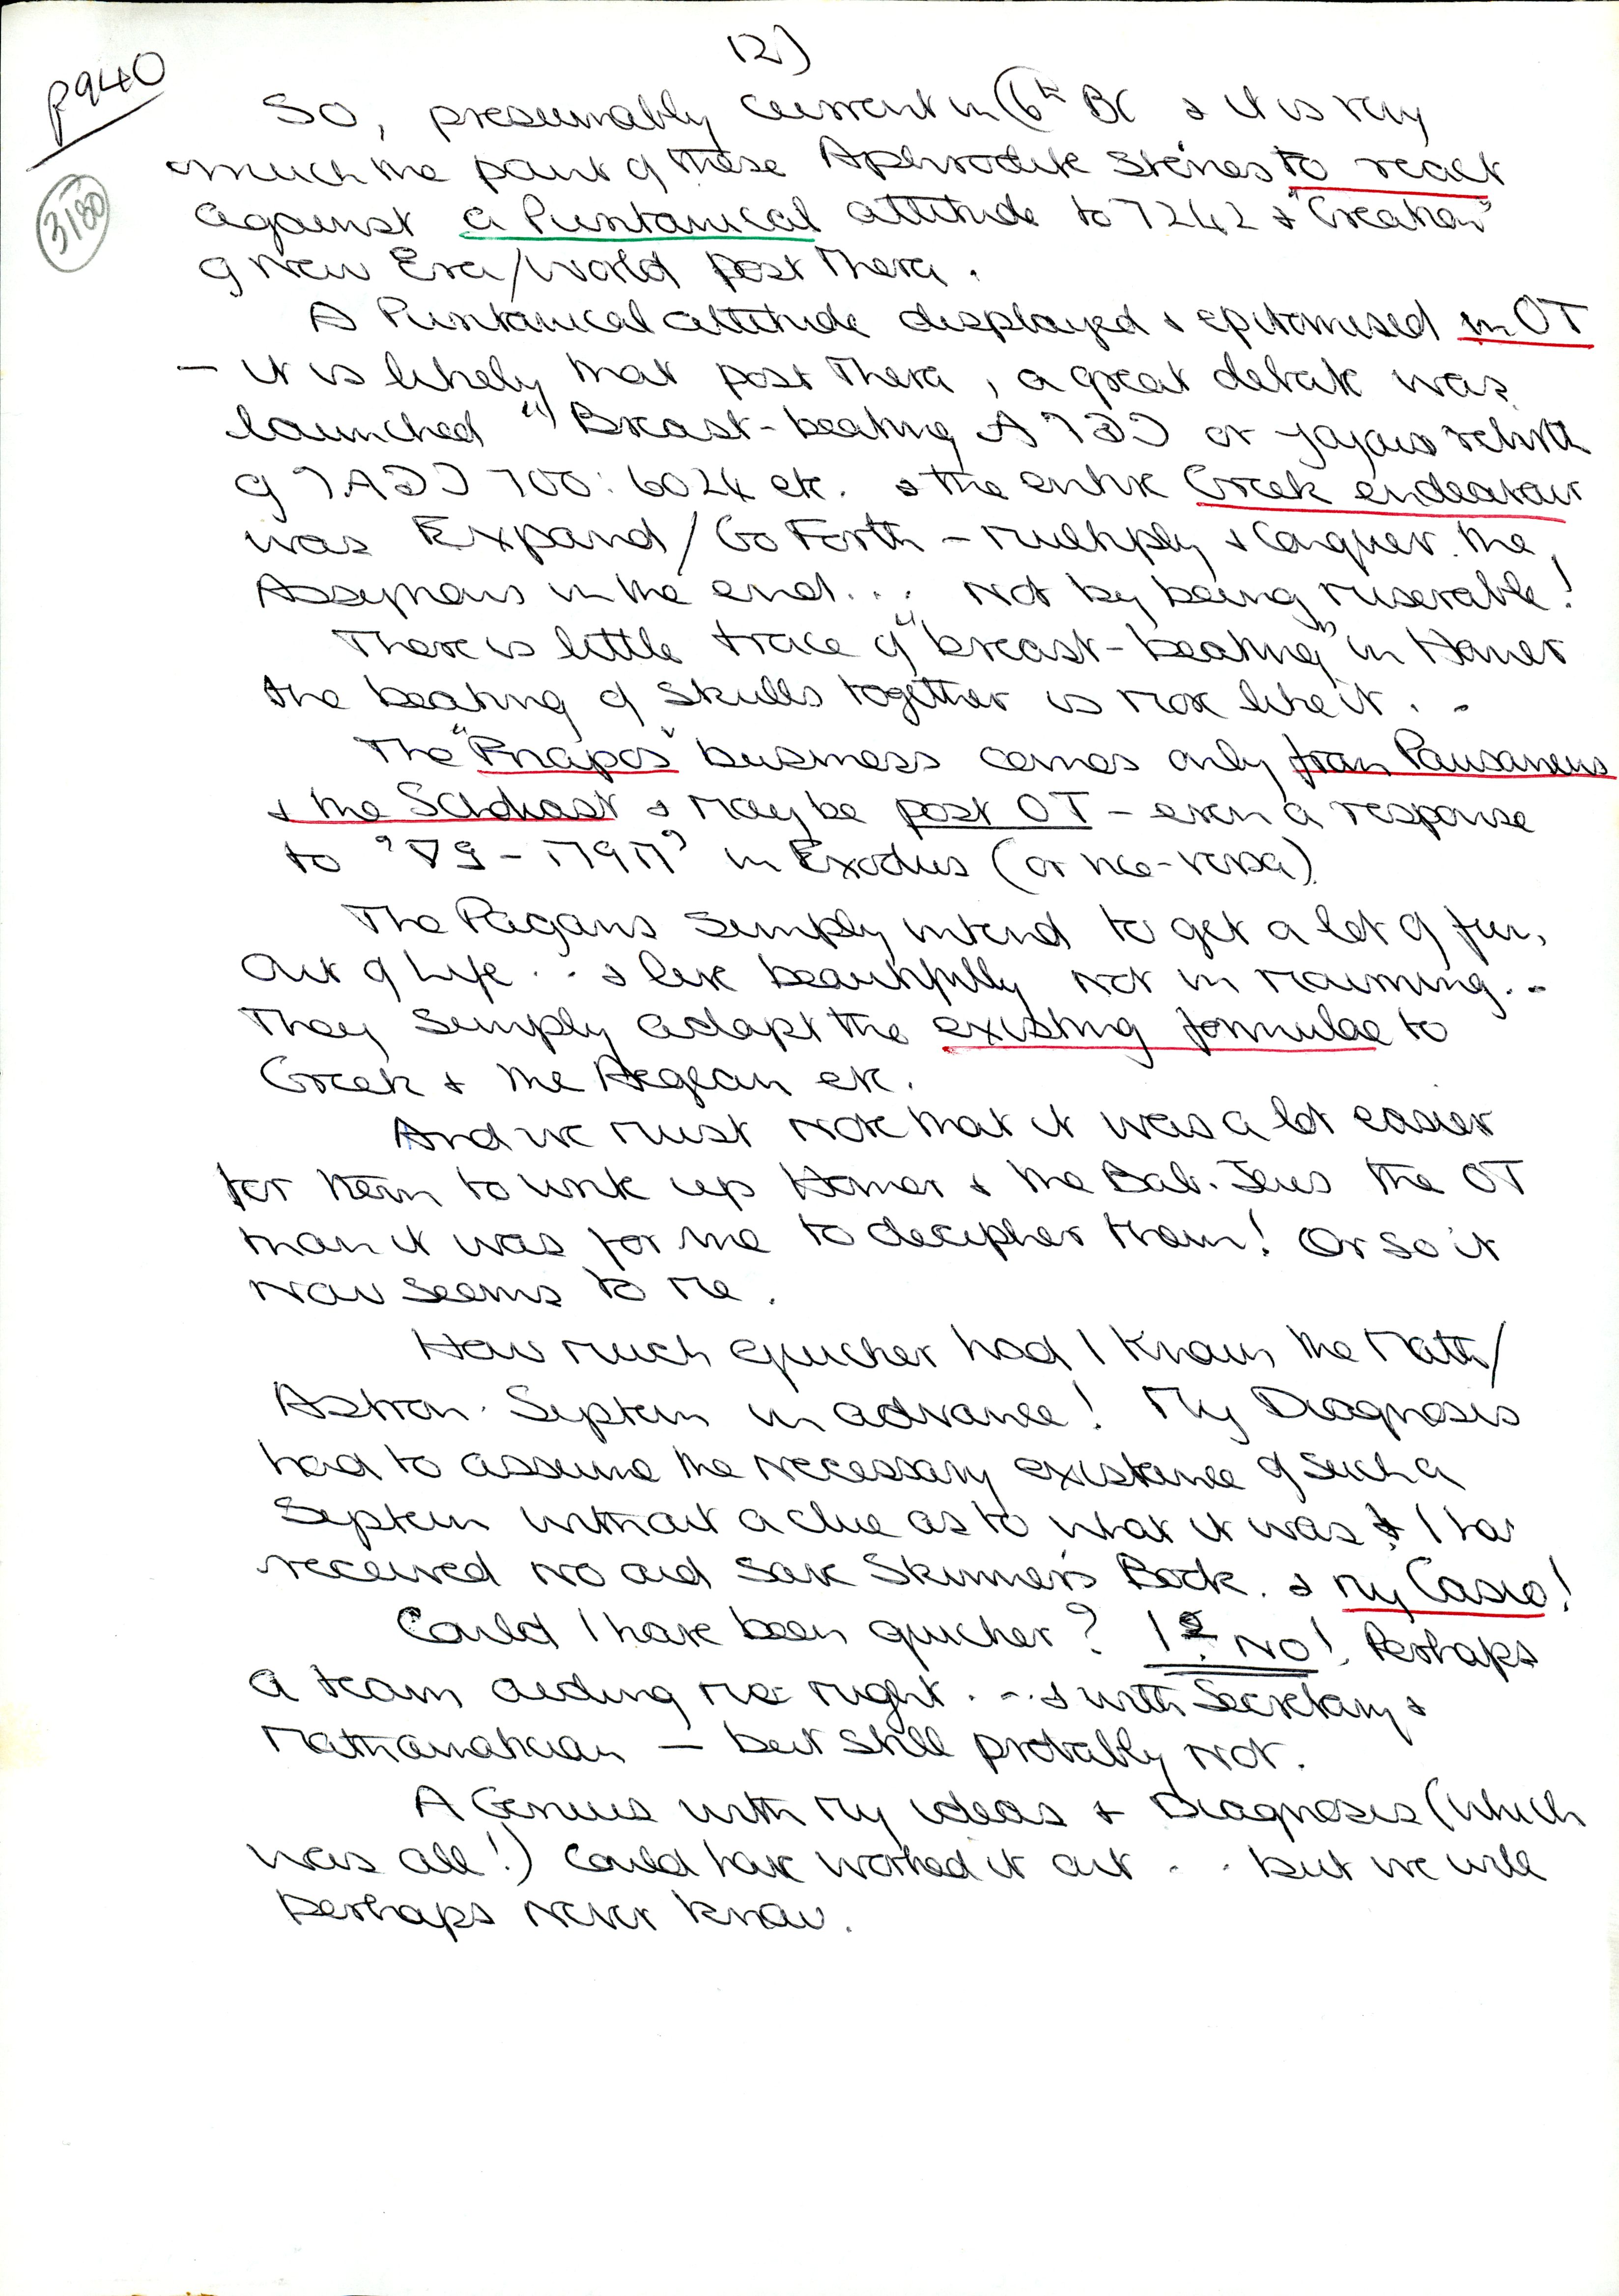 12)
P940
3180
So, presumably current in C6th BC & it is very
much the point of these Aphrodite stories to react
against a Puritanical attitude to 7242 & "Creation"
of New Era/World post Thera.
A Puritanical attitude displayed & epitomised in OT
— it is likely that post Thera, a great debate was
launched "Breast-beating or joyous rebirth
of 700: 6024 etc. & the entire Greek endeavour
was Expand/Go Forth – Multiply & Conquer. the
Assyrians in the end... Not by being miserable!
There is little trace of "breast-beating" in Homer
the beating of skulls together is more like it..
The "Priapos" business comes only from Pausaneus
& the Scholiast & may be post OT – even a response
to in Exodus (or vice-versa)
The Pagans simply intend to get a lot of fun,
out of Life... & live beautifully not in mourning..
They simply adapt the existing formulae to
Greek & the Aegean etc.
And we must note that it was a lot easier
for them to write up Homer & the Bab. Jews the OT
than it was for me to decipher them! Or so it
now seems to me.
How much quicker had I known the Math/
Astron. System in advance! My Diagnosis
had to assume the necessary existence of such a
System without a clue as to what it was & I ha
received no aid save Skinner's Book. & my Casio!
Could I have been quicker? No! Perhaps
a team aiding me might... & with Secretary &
Mathematician — but still probably not.
A Genius with my ideas & Diagnosis (which
was all!) could have worked it out ... but we will
perhaps never know.